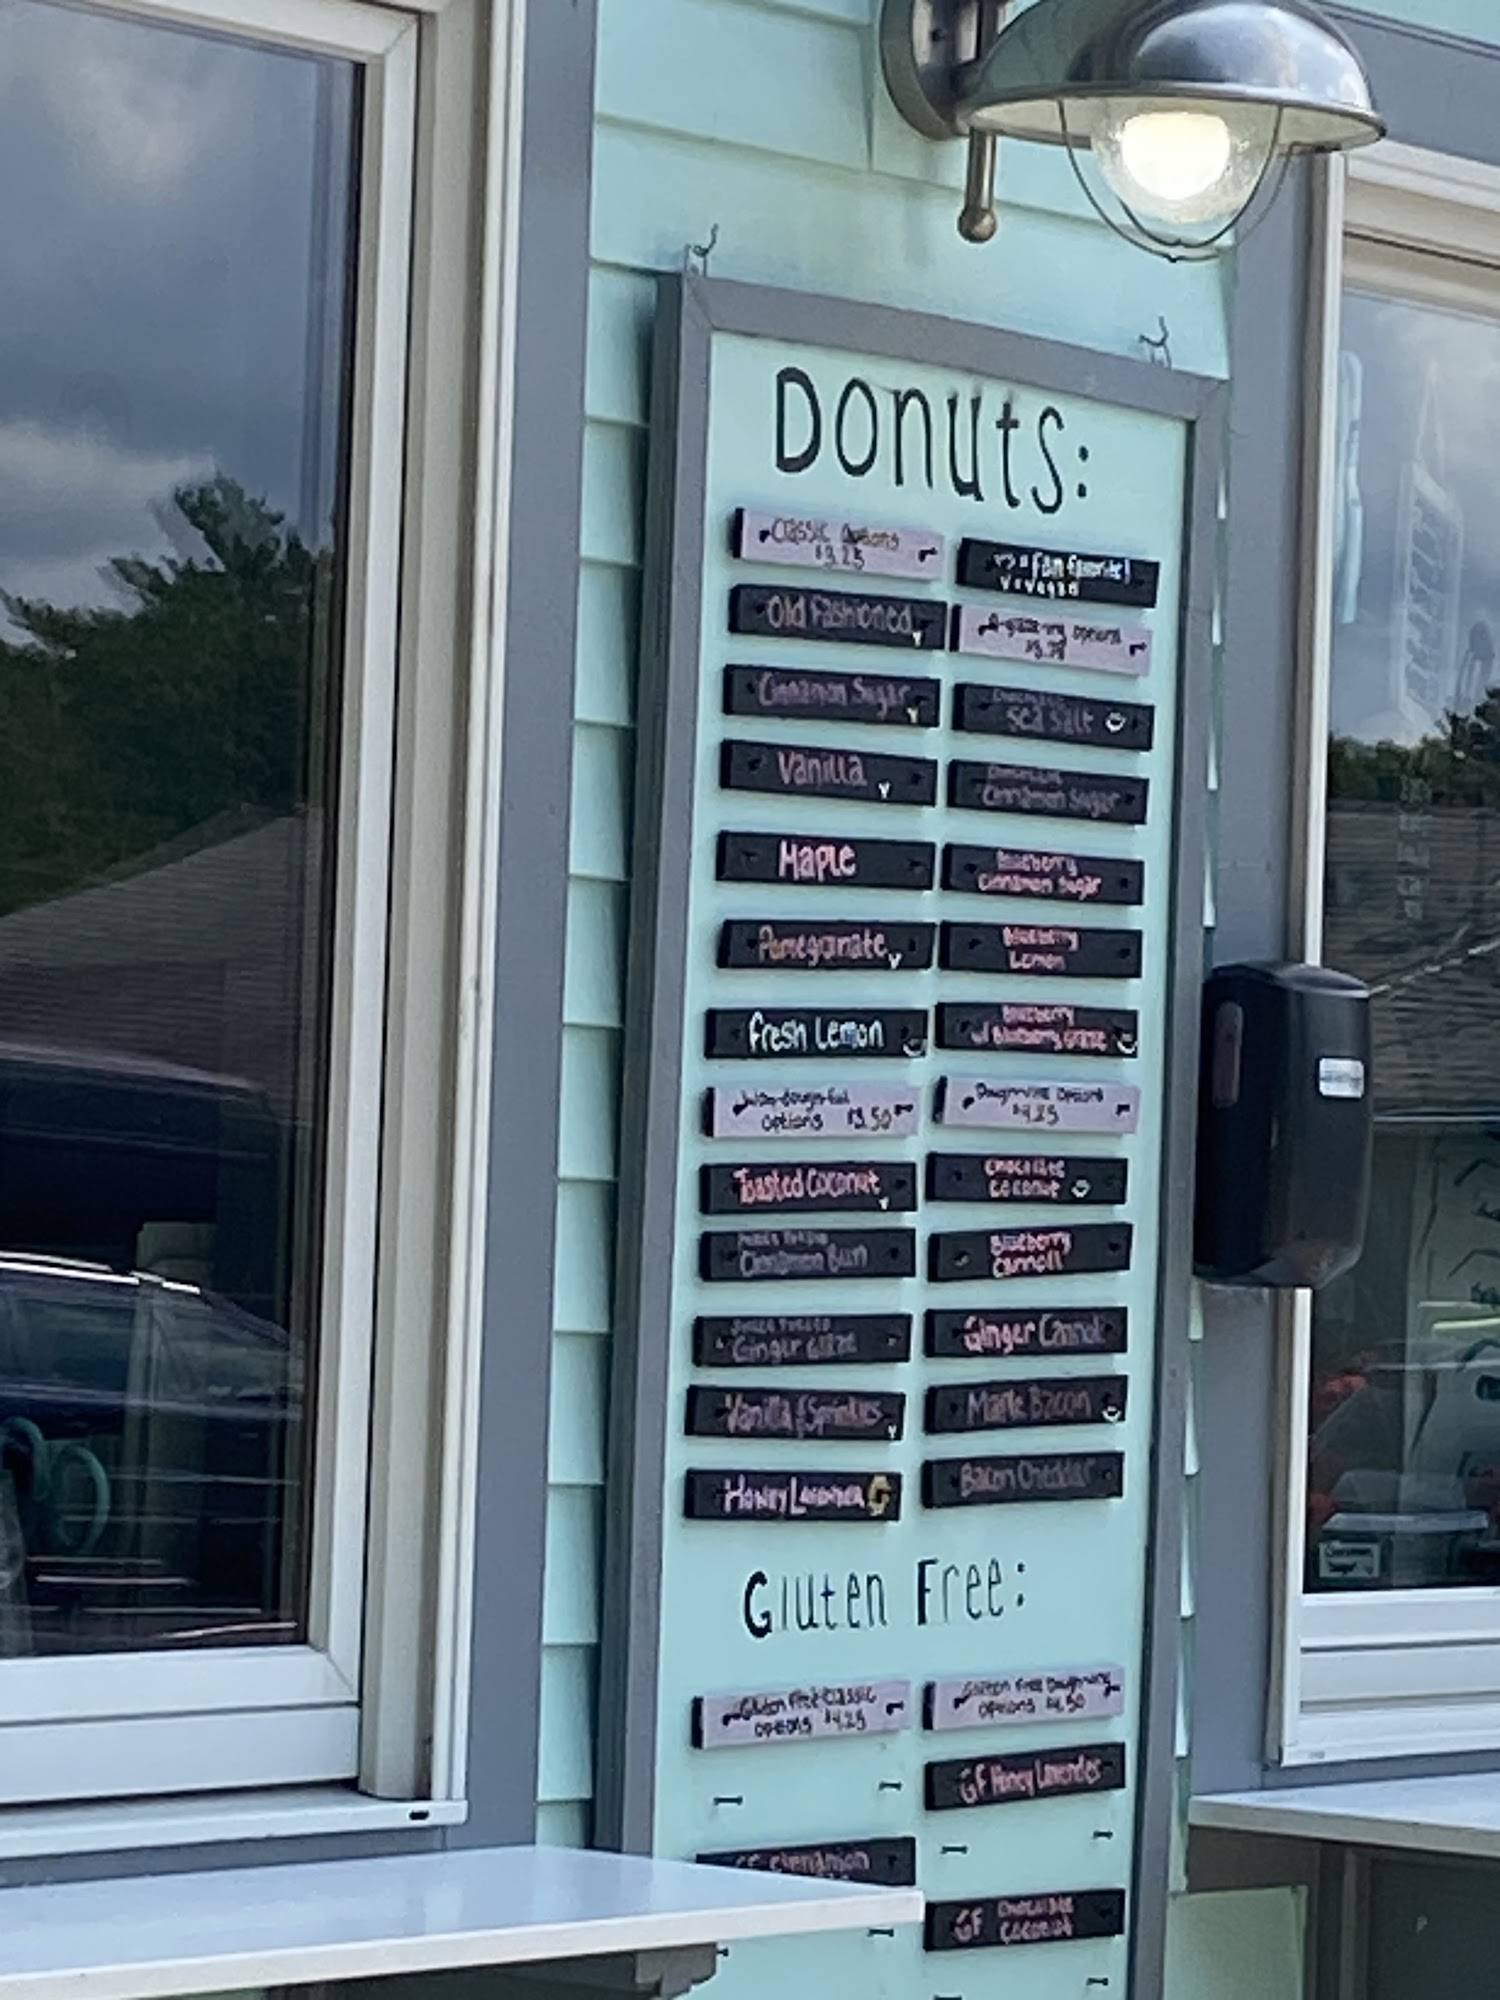 Donuts:
Classic Options
$3.25
Old Fashioned v
Cinnamon Sugar v
Vanilla v
Maple
Pomegranate v
Fresh Lemon
options $3.50
Toasted Coconut v
Cinnamon Bun
Ginger Glaze
Vanilla & Sprinkles v
Honey Lavender
= Fan favorite!
v = vegan
options
Sea Salt
Chocolate
Cinnamon Sugar
Blueberry
Cinnamon Sugar
Blueberry
Lemon
Blueberry
w/ Blueberry Glaze
options
Chocolate
Coconut
Blueberry
Cannoli
Ginger Cannoli
Maple Bacon
Bacon Cheddar
Gluten Free:
Gluten Free Classic
options $4.25
GF Cinnamon
Gluten Free
options $4.50
GF Honey Lavender
GF Chocolate
Coconut